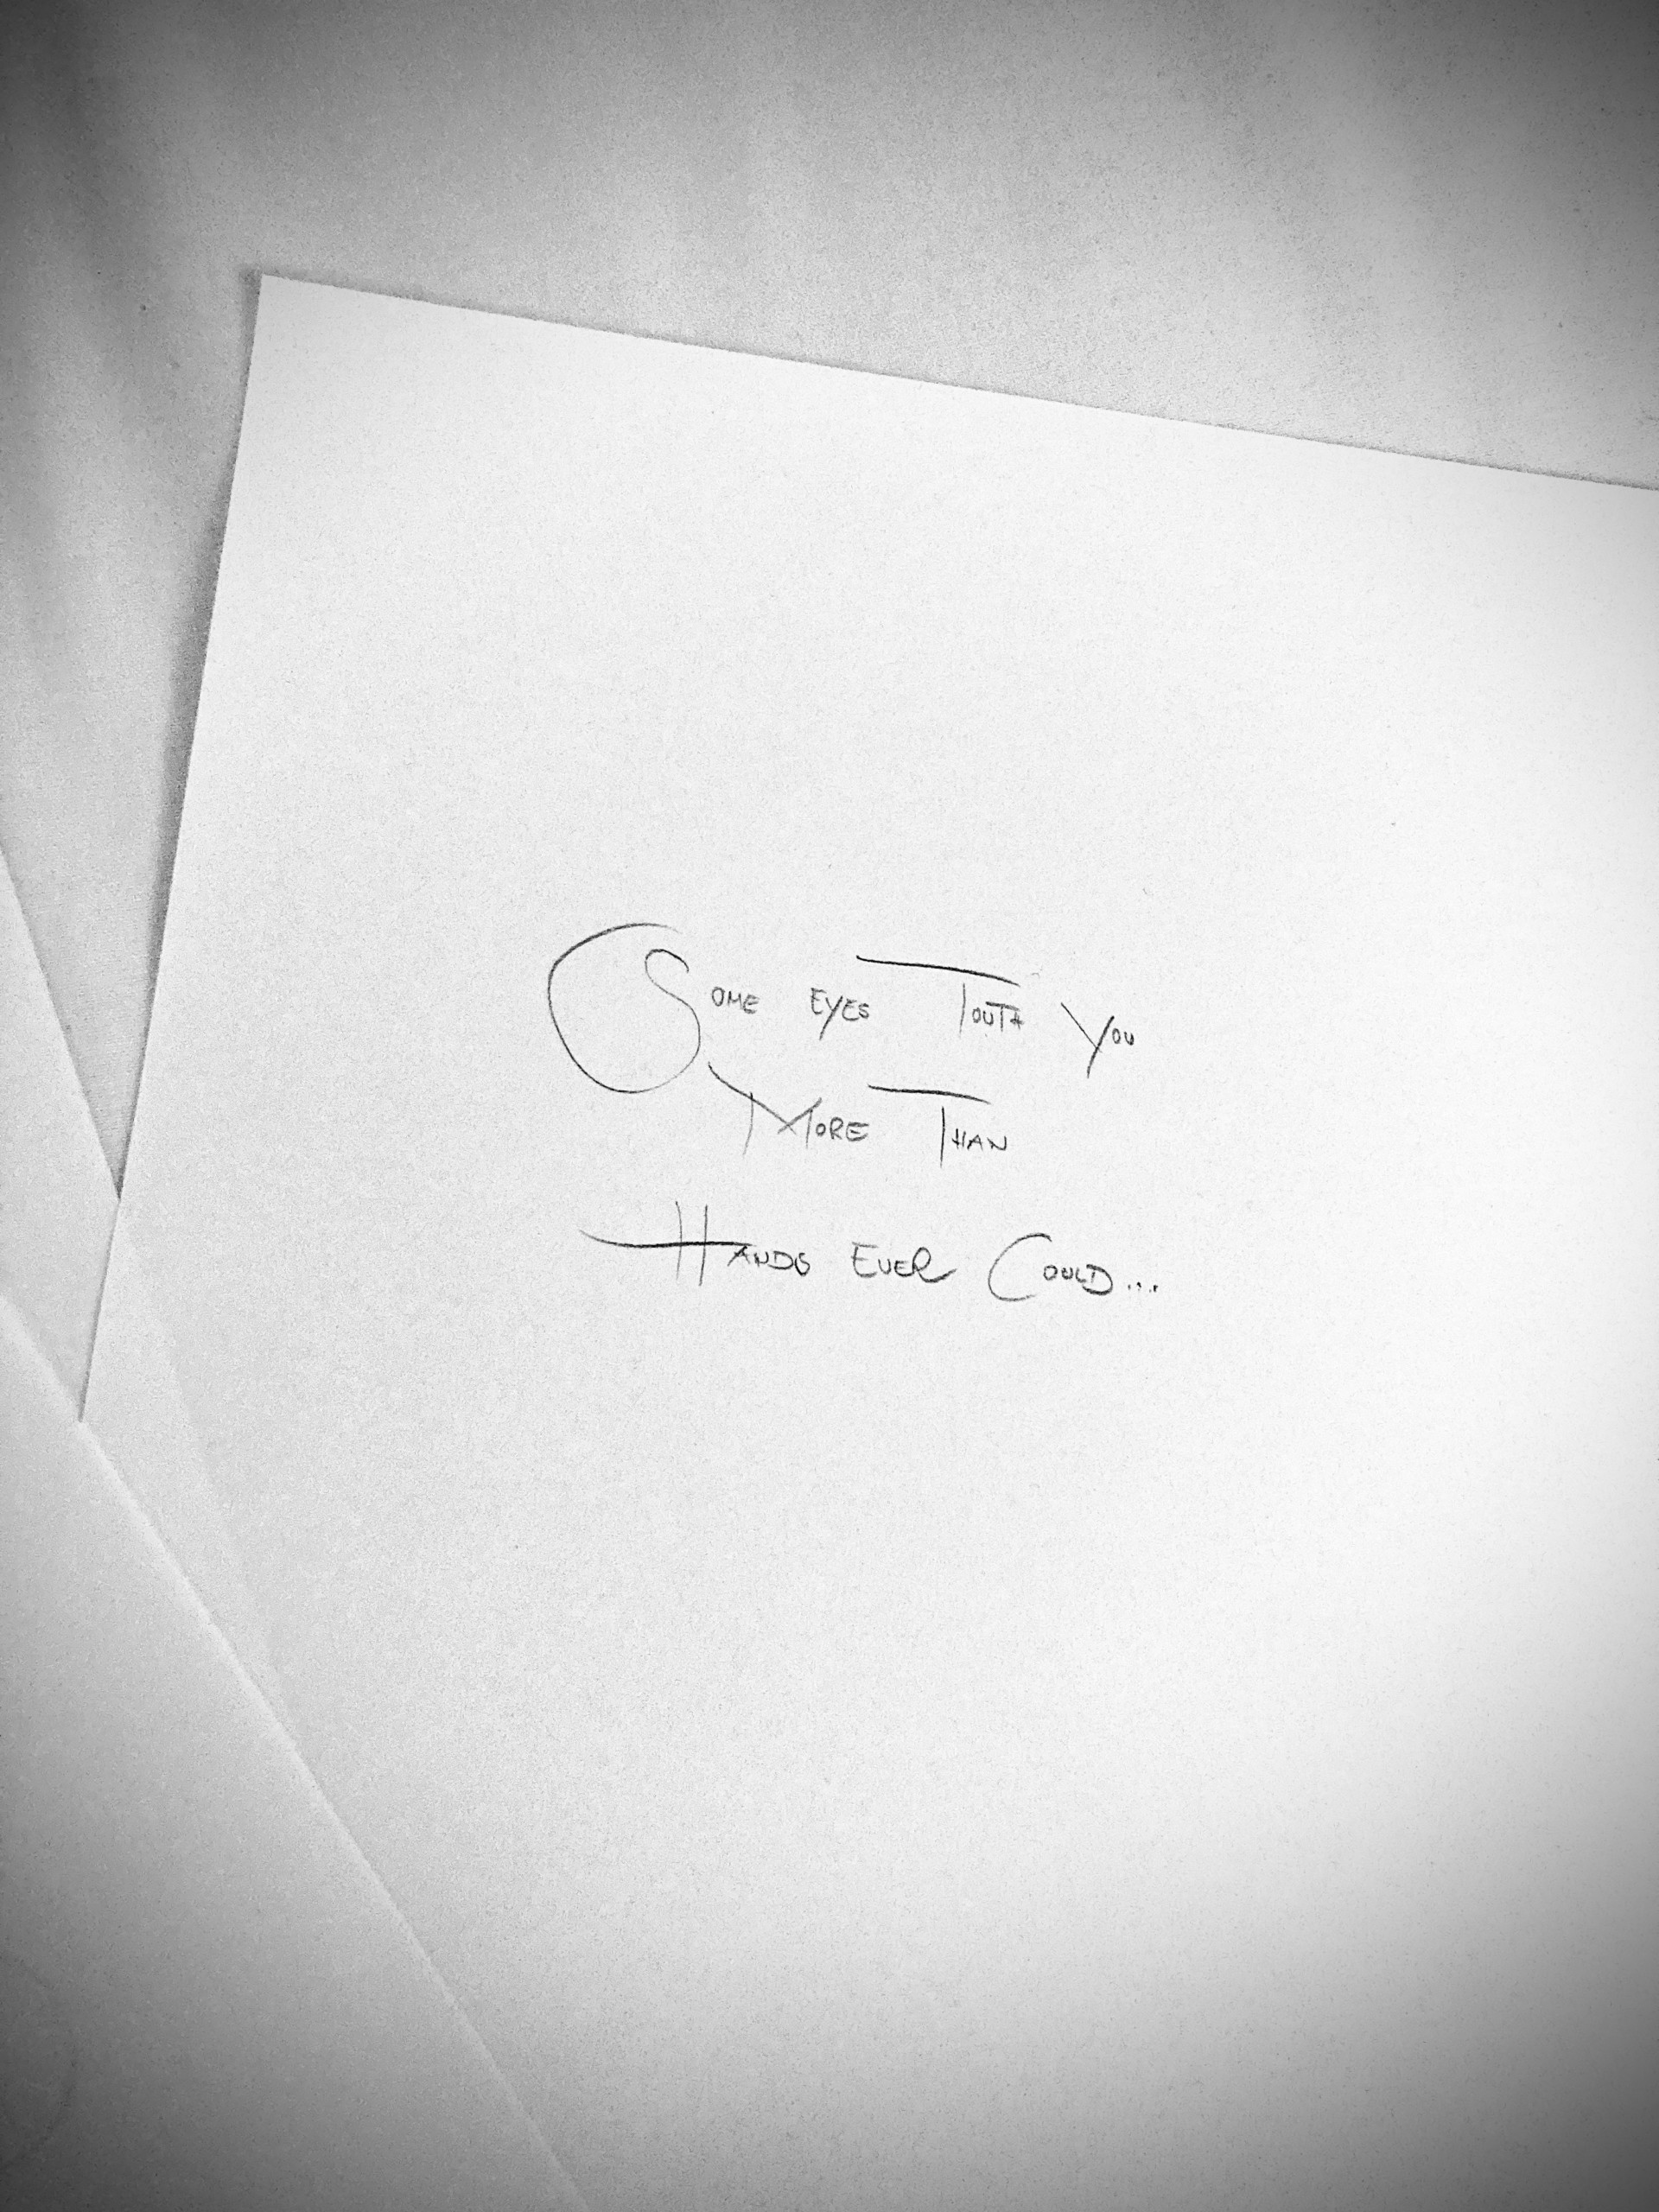 Some eyes Touth You
More Than
Hands Ever Could...